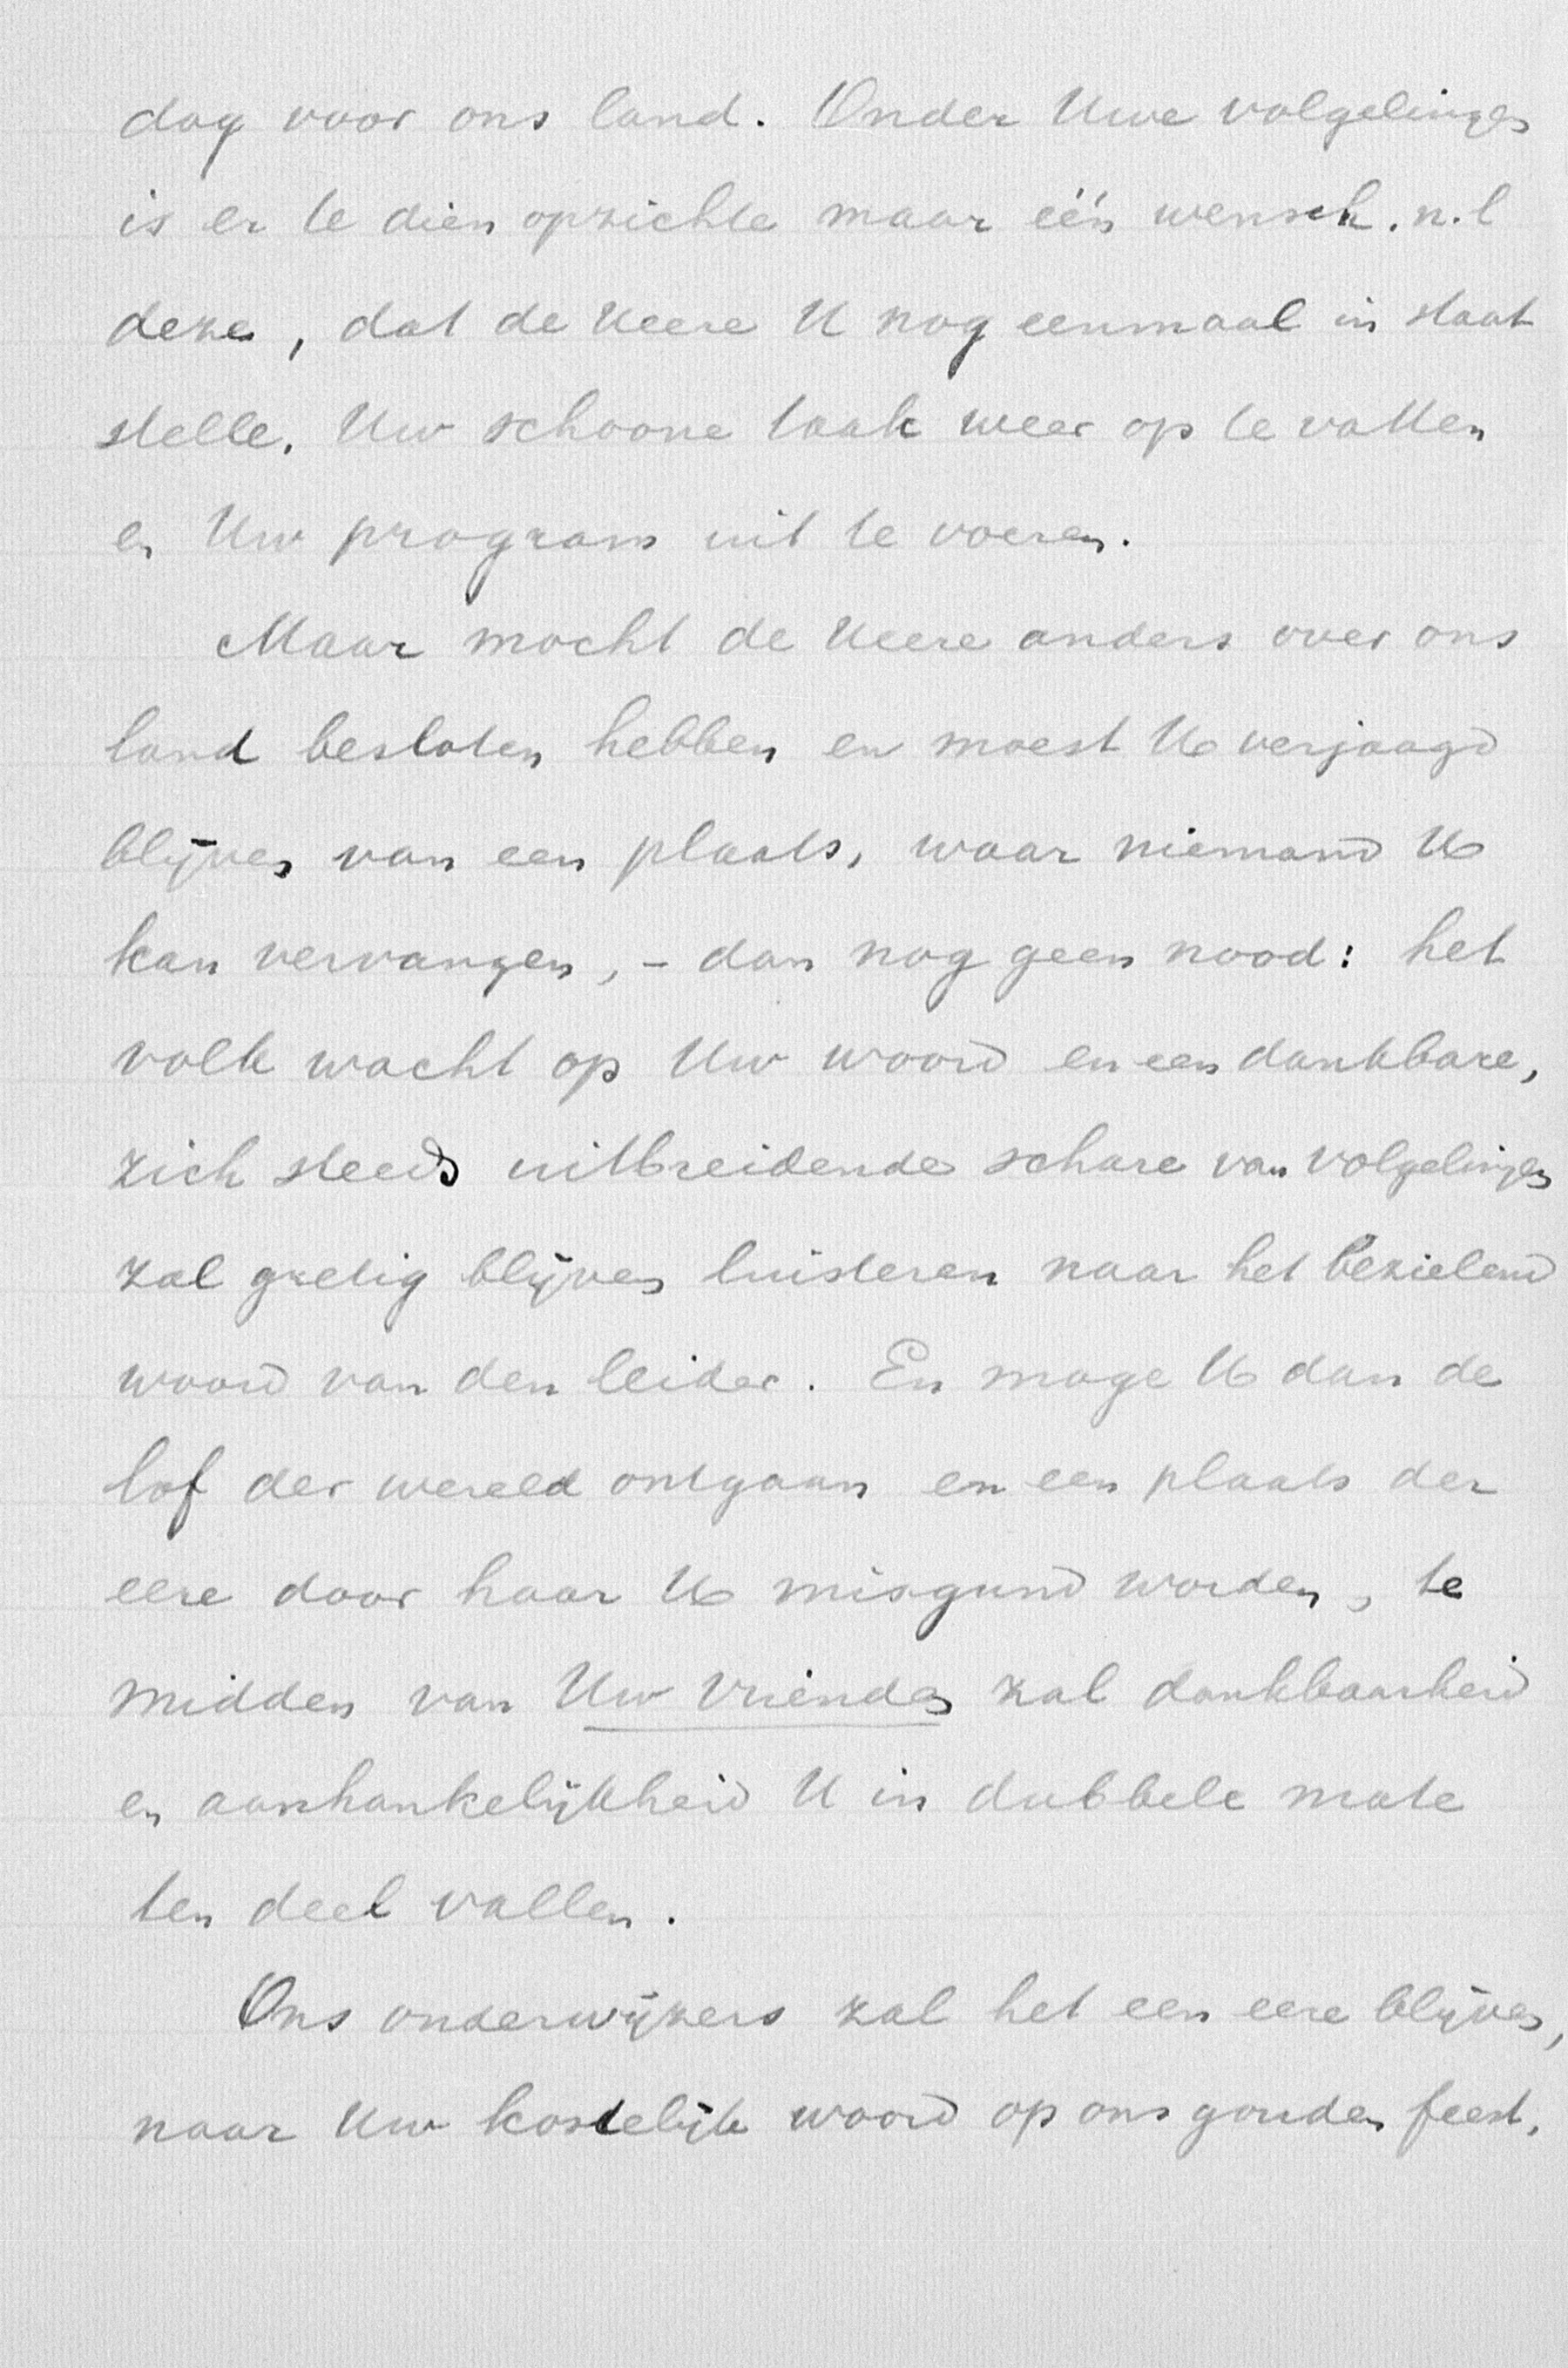 dag voor ons land. Onder Uwe volgelingen
is er te dien opzichte maar één wensch. n.l
deze, dat de Heere U nog eenmaal in staat
stelle, Uw schoone taak weer op te vatten
en Uw program uit te voeren.
Maar mocht de Heere anders over ons
land besloten hebben en moest U verjaagd
blijven van een plaats, waar niemand U
kan vervangen, - dan nog geen nood: het
volk wacht op Uw woord en een dankbare,
zich steeds uitbreidende schare van volgelingen
zal gretig blijven luisteren naar het bezielend
woord van den leider. En moge U dan de
lof der wereld ontgaan en een plaats der
eere door haar U misgund worden, te
midden van Uw vrienden zal dankbaarheid
en aanhankelijkheid U in dubbele mate
ten deel vallen.
Ons onderwijzers zal het een eere blijven,
naar Uw kostelijk woord op ons gouden feest,